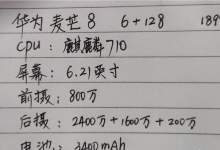 华为麦芒8 6+128 189
CPU：麒麟710
屏幕：6.21英寸
前摄：800万
后摄：2400万+1600万+200万
电池：3400mAh